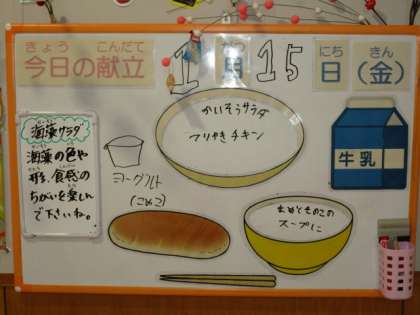 きょう こんだて
今日の献立
1 がつ 15 にち きん
月 日 (金)
かいそうサラダ
てりやきチキン
海藻サラダ
海藻の色や
形、食感の
ちがいを楽しん
で下さいね。
ヨーグルト
(こめこ)
牛乳
まめときのこの
スープに